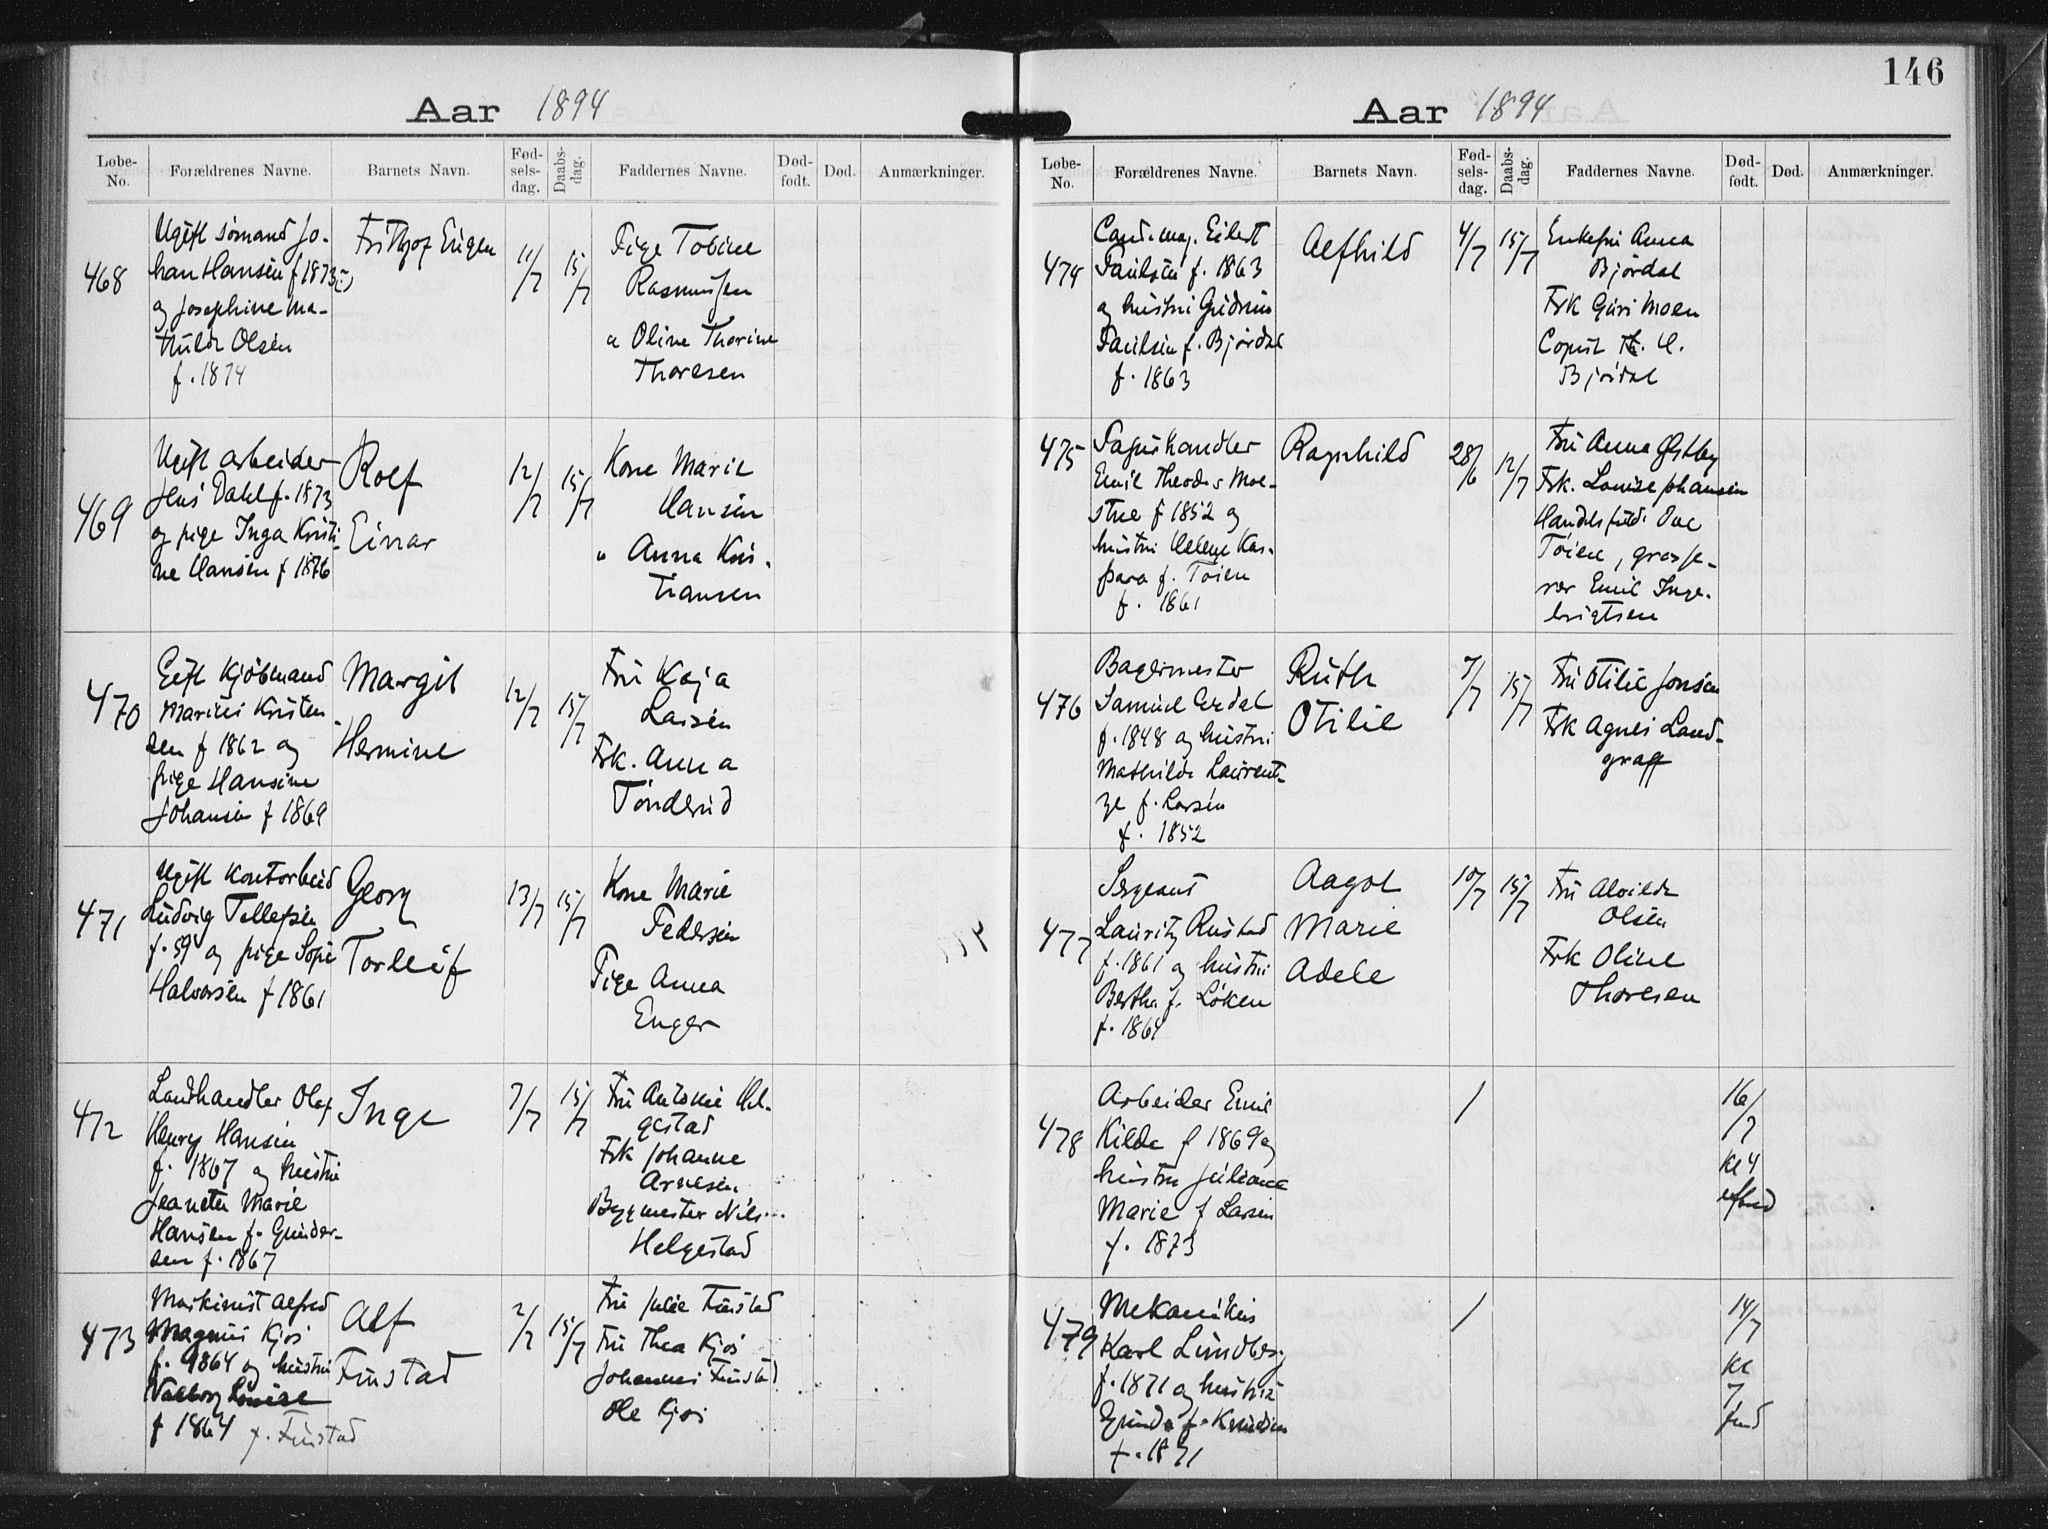 146
Aar 1894
Løbe-No.
Forældrenes Navne.
Barnets Navn.
Fød-sels-dag.
Daabs-dag.
Faddernes Navne.
Død-født.
Død.
Anmærkninger.
468
Ugift sømand Jo-
han Hansen f 1873
og Josephine Ma-
thilde Olsen
f. 1874
Frithjof Erigen
11/7
15/7
Pige Tobine
Rasmussen
" Oline Thorine
Thoresen
469
Ugift arbeider
Jens Dahl f. 1873
og pige Inga Kristi-
ne Hansen f 1876
Rolf
Einar
12/7
15/7
Kone Marie
Hansen
" Anna Kris-
tiansen
470
Gift Kjøbmand
Marius Kristen
sen f 1862 og
pige Hansine
Johansen f 1869
Margit
Hermine
12/7
15/7
Fru Kaja
Larsen
Frk. Anna
Tønderud
471
Ugift Kontorbeid
Ludvig Tellefsen
f. 59 og pige Sofie
Halvorsen f 1861
Georg
Torleif
13/7
15/7
Kone Marie
Pedersen
Pige Anna
Enger
472
Landhandler Olaf
Henry Hansen
f. 1867 og hustru
Jeanette Marie
Hansen f. Gunder-
sen f. 1867
Inge
7/7
15/7
Fru Antonie Hel-
gestad
Frk Johanne
Arnesen
Byggmester Nils
Helgestad
473
Maskinist Alfred
Magnus Kjos
f. 1864 og hustru
Valborg Louise
f 1864 f. Finstad
Alf
Finstad
2/7
15/7
Fru Julie Finstad
Fru Thea Kjos
Johannes Finstad
Ole Kjos
Aar 1894
Løbe-No.
Forældrenes Navne.
Barnets Navn.
Fød-sels-dag.
Daabs-dag.
Faddernes Navne.
Død-født.
Død.
Anmærkninger.
474
Cand. mag. Eilert
Paulsen f. 1863
og hustru Gudrun
Paulsen f. Bjørdal
f. 1863
Alfhild
4/7
15/7
Enkefru Anna
Bjørdal
Frk Guri Moen
Copist Th. A.
Bjørdal
475
Papirhandler
Emil Theodor Moe-
stue f 1852 og
hustru Helene Kas-
para f. Tøien
f. 1861
Ragnhild
28/6
12/7
Fru Anna Østby
Frk. Louise Johansen
Handelsfuldm. Ove
Tøien, grosse-
rer Emil Inge-
brigtsen
476
Bagermester
Samuel Erdal
f. 1848 og hustru
Mathilde Laurent-
ze f. Larsen
f. 1852
Ruth
Otilie
7/7
15/7
Fru Otilie Jonsen
Frk Agnes Land-
graff
477
Sergeant
Lauritz Rustad
f. 1861 og hustru
Bertha f. Løken
f. 1864
Aagot
Marie
Adele
10/7
15/7
Fru Alvilda
Olsen
Frk Oline
Thoresen
478
Arbeider Emil
Kilde f 1869 og
hustru Juliane
Marie f Larsen
f. 1873
/
16/7
kl 4
efmd
479
Mekanikus
Karl Lundberg
f. 1871 og hustru
Gunda f. Knudsen
f. 1871
/
14/7
kl
7
fmd